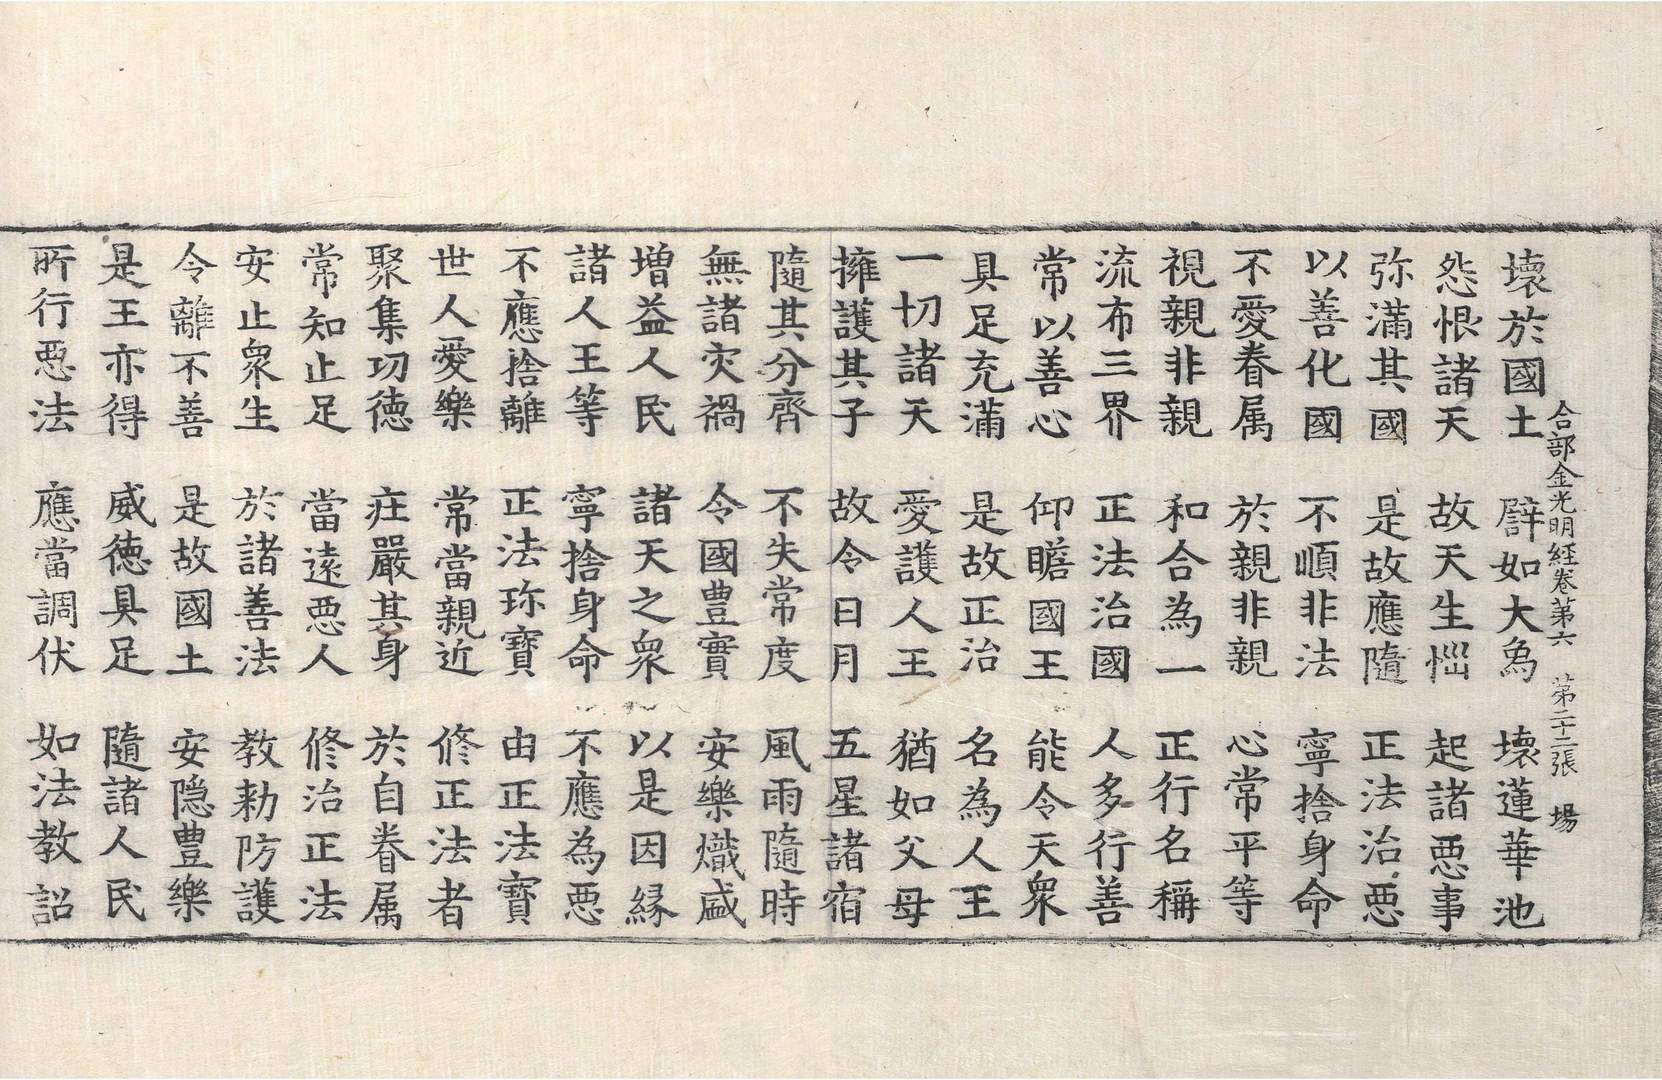 合部金光明経卷第六 第二十二張 場
壞於國土 譬如大為 壞蓮華池
怨恨諸天 故天生惱 起諸惡事
弥滿其國 是故應隨 正法治惡
以善化國 不順非法 寧捨身命
不愛眷属 於親非親 心常平等
視親非親 和合為一 正行名稱
流布三界 正法治國 人多行善
常以善心 仰瞻國王 能令天衆
具足充滿 是故正治 名為人王
一切諸天 愛護人王 猶如父母
擁護其子 故令日月 五星諸宿
隨其分齊 不失常度 風雨隨時
無諸灾禍 令國豊實 安樂熾盛
增益人民 諸天之衆 以是因縁
諸人王等 寧捨身命 不應為惡
不應捨離 正法珎寶 由正法寶
世人愛樂 常當親近 修正法者
聚集功德 莊嚴其身 於自眷属
常知止足 當遠惡人 修治正法
安止衆生 於諸善法 教勑防護
令離不善 是故國土 安隠豊樂
是王亦得 威德具足 隨諸人民
所行惡法 應當調伏 如法教詔